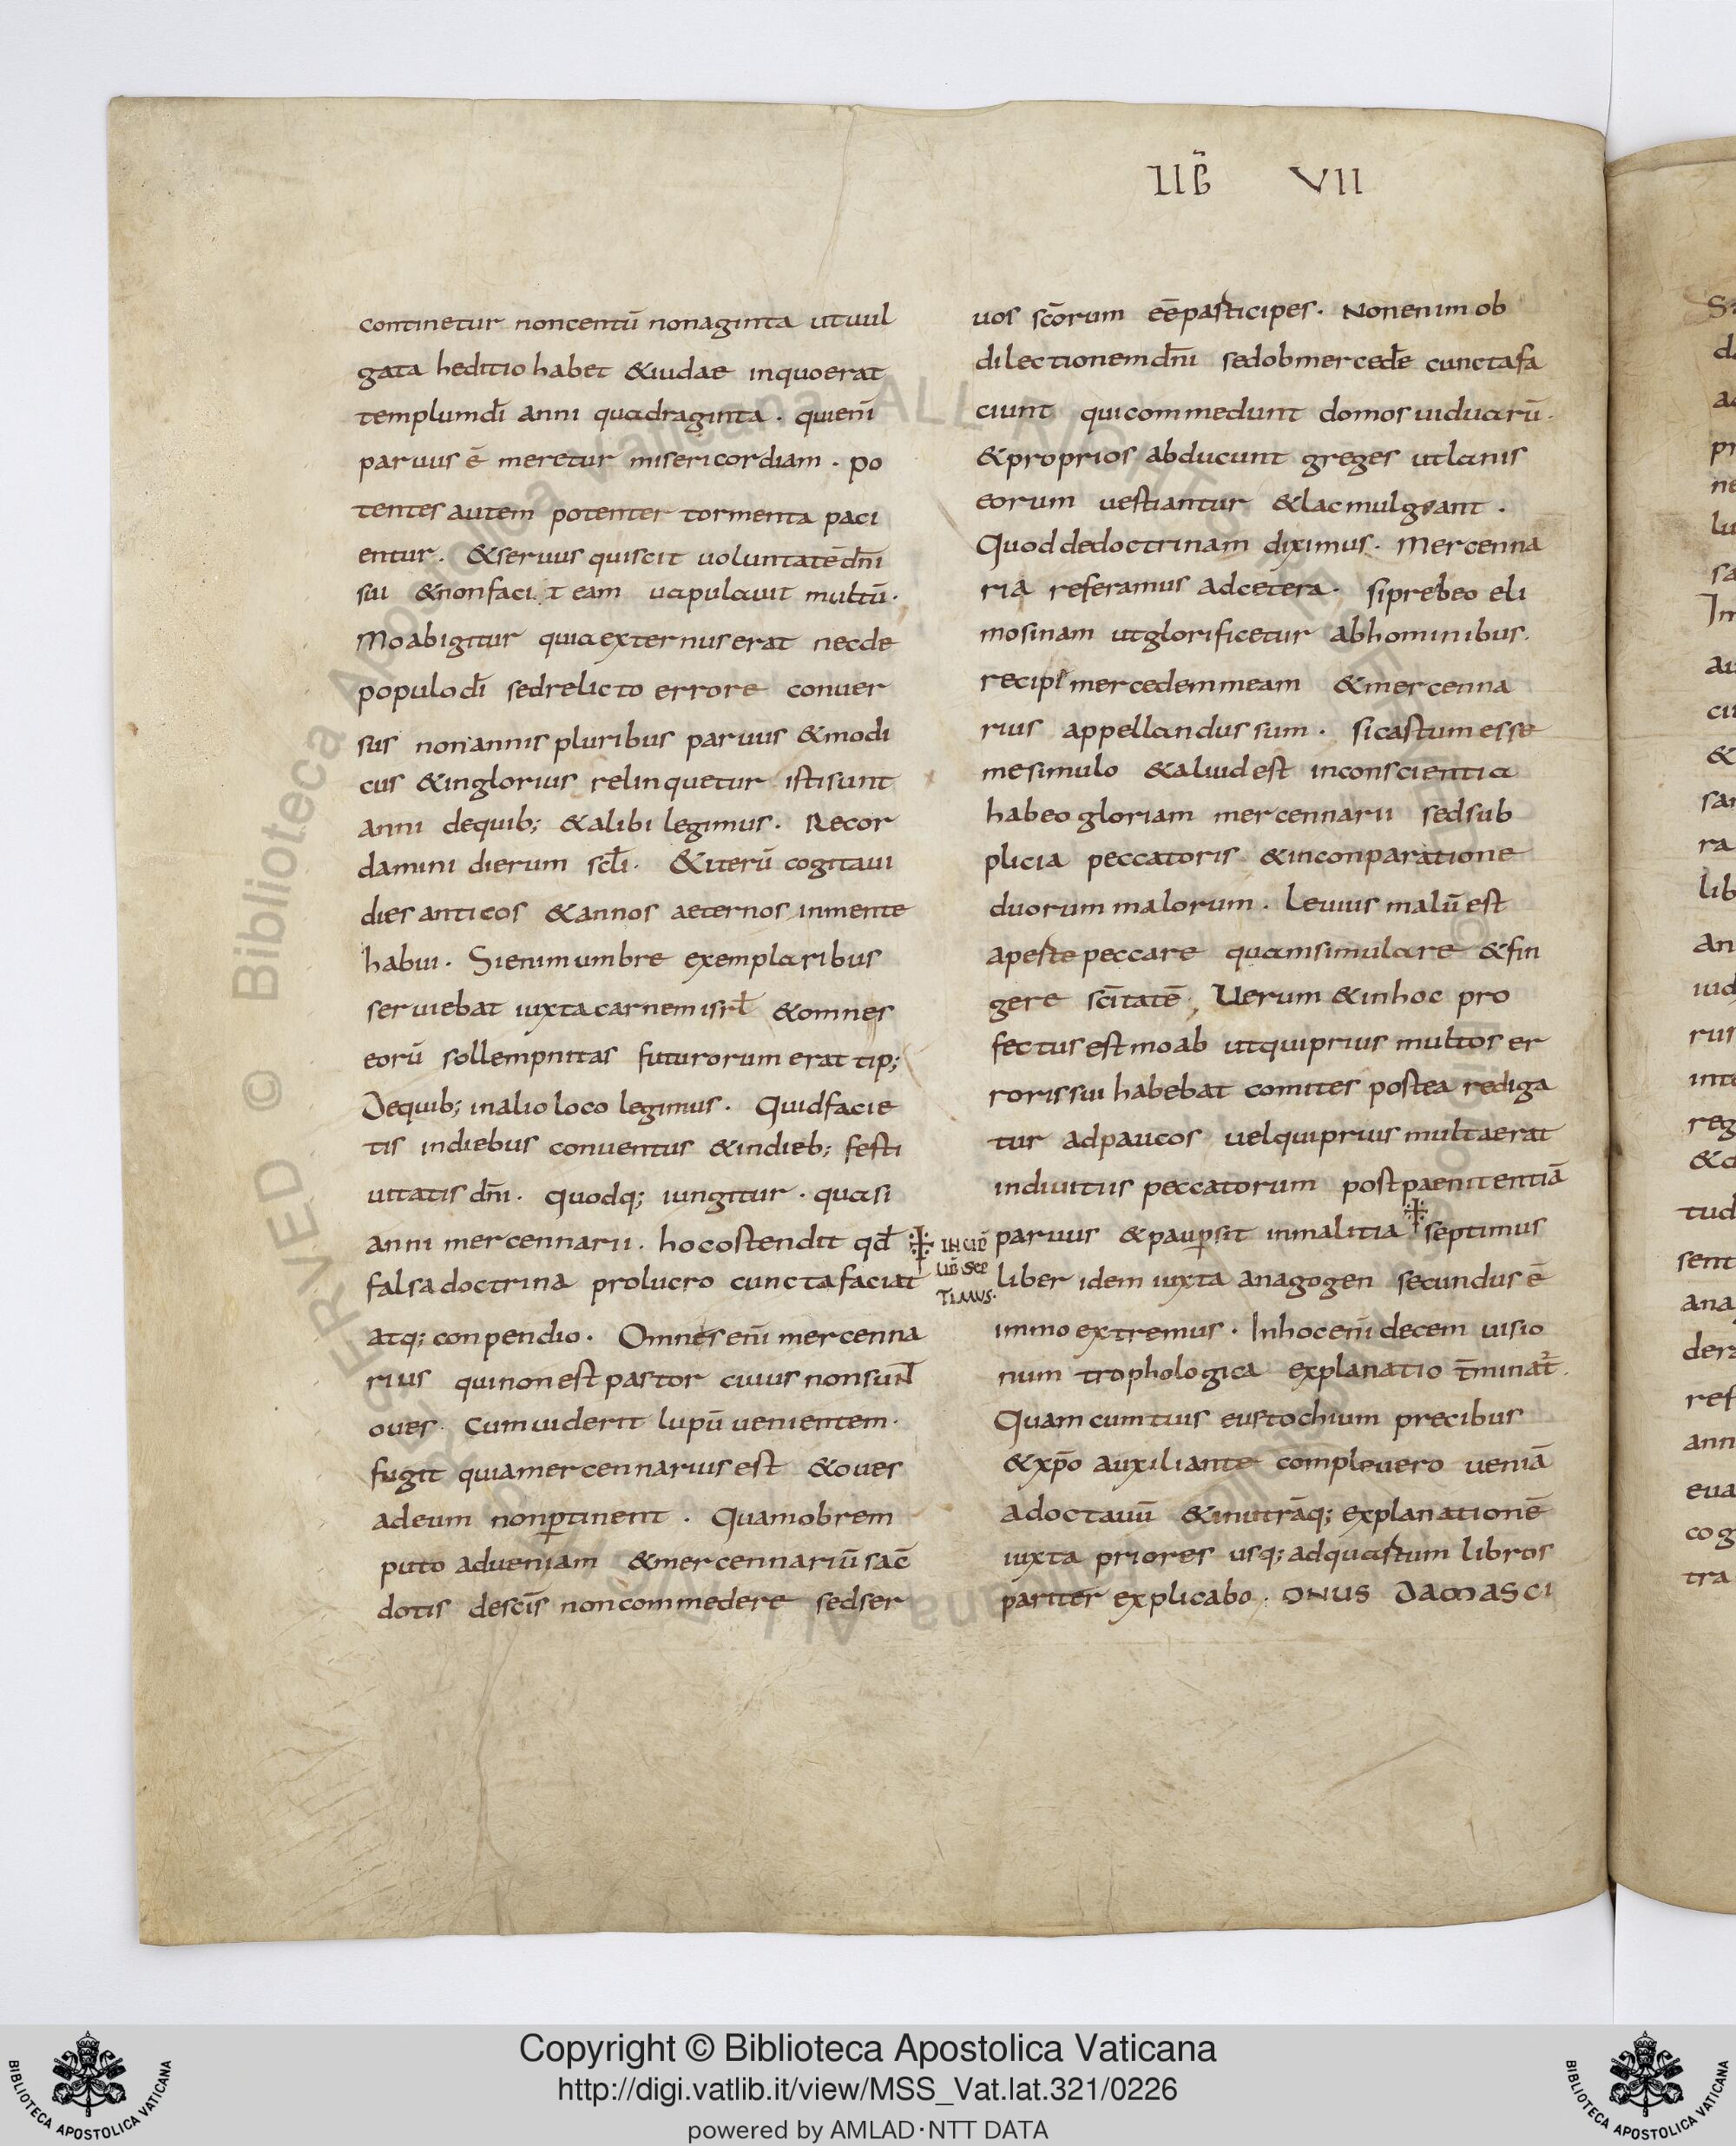 LIB̃ VII
continetur noncentū nonaginta utuul
gata heditio habet &iudae inquoerat
templumdī anni quadraginta · quienī
paruus ē meretur misericordiam · po
tentes autem potenter tormenta paci
entur · &seruus quiscit uoluntatēdn̄i
sui &nonfacit eam uapulauit multū ·
Moabigitur quiaexternuserat necde
populodī sedrelicto errore conuer
sus nonannis pluribus paruus &modi
cus &inglorius relinquetur istisunt
anni dequib; &alibi legimus · Recor
damini dierum scl̄i · &iterū cogitaui
dies anticos &annos aeternos inmente
habui · Sienimumbre exemplaribus
seruiebat iuxtacarnemisrl̄ &omnes
eorū sollempnitas futurorum erat tip;
Dequib; inalio loco legimus · Quidfacie
tis indiebus conuentus &indieb; festi
uitatis dn̄i · quodq; iungitur · quasi
anni mercennarii · hocostendit qd̄
falsadoctrina prolucro cunctafaciat
atq; conpendio · Omnesenī mercenna
rius quinonest pastor cuius nonsunt
oues · Cumuiderit lupū uenientem ·
fugit quiamercennarius est &oues
adeum nonp̱tinent · Quamobrem
puto adueniam &mercennariū sac̄
dotis descīs noncommedere sedser
INCIP̄
LIB̄ SEP
TIMUS ·
uos sc̄orum eēpasticipes · Nonenimob
dilectionemdn̄i sedobmercedē cunctafa
ciunt quicommedunt domosuiduarū ·
&proprios abducunt greges utlanis
eorum uestiantur &lacmulgeant ·
Quoddedoctrinam diximus · Mercenna
ria referamus adcetera · siprebeo eli
mosinam utglorificetur abhominibus ·
recipi mercedemmeam &mercenna
rius appellandus sum · sicastumesse
mesimulo &aliudest inconscientia
habeo gloriam mercennarii sedsub
plicia peccatoris &inconparatione
duorum malorum · Leuius malūest
apeste peccare quamsimulare &fin
gere scītatē · Uerum &inhoc pro
fectusestmoab utquiprius multos er
rorissui habebat comites postea rediga
tur adpaucos uelquiprius multaerat
indiuitiis peccatorum postpaenitentiā
paruus &paup̱sit inmalitia septimus
liber idem iuxta anagogen secundus ē
immo extremus · Inhocenī decem uisio
num trophologica explanatio t̄minat̄ ·
Quamcumtuis eustochium precibus
&xp̄o auxiliante compleuero ueniā
adoctauū &inutrāq; explanationē
iuxta priores usq; adquastum libros
pariter explicabo · ONUS DAMASCI
Copyright © Biblioteca Apostolica Vaticana
http://digi.vatlib.it/view/MSS_Vat.lat.321/0226
powered by AMLAD·NTT DATA
BIBLIOTECA APOSTOLICA VATICANA
BIBLIOTECA APOSTOLICA VATICANA